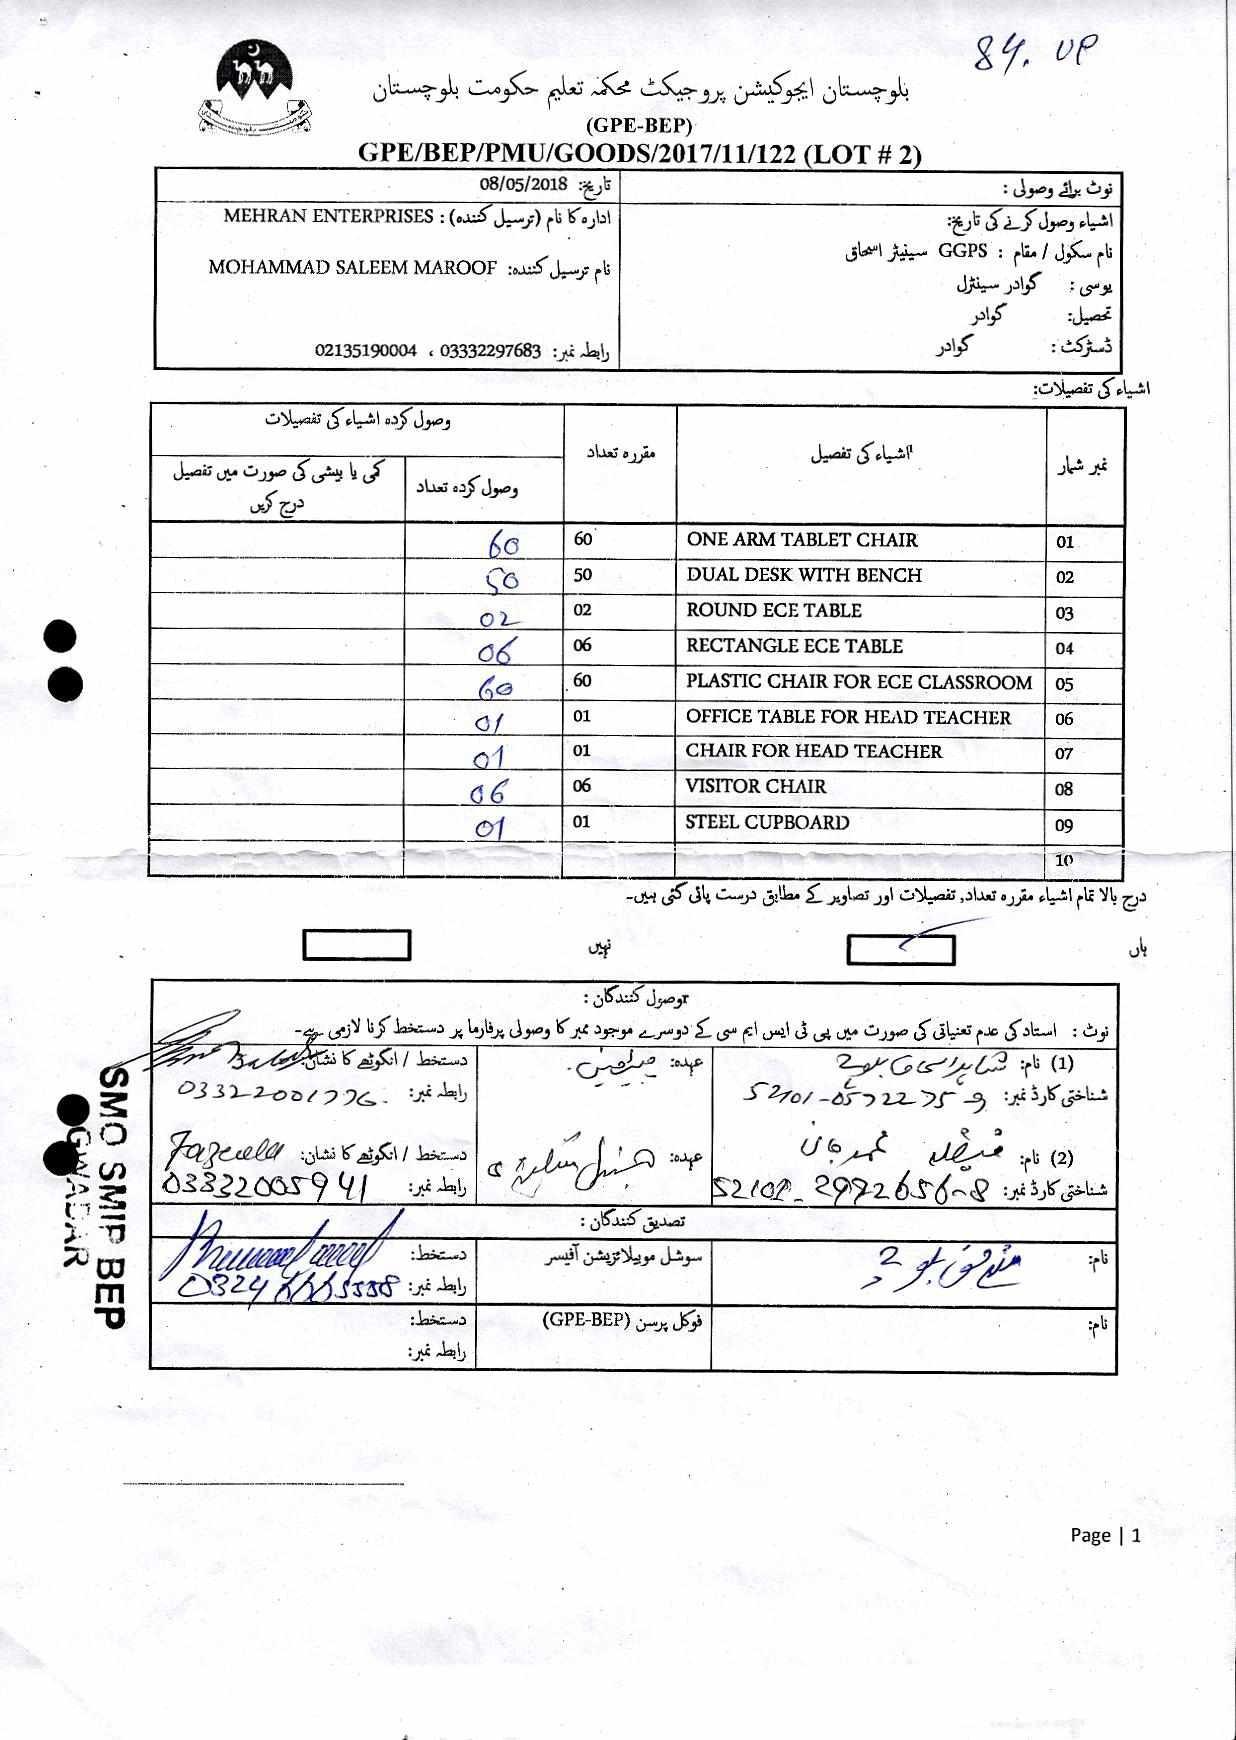 84. UP
بلوچستان ایجوکیشن پروجیکٹ محکمہ تعلیم حکومت بلوچستان
(GPE-BEP)
GPE/BEP/PMU/GOODS/2017/11/122 (LOT # 2)
نوٹ برائے وصولی :
تاریخ: 08/05/2018
اشیاء وصول کرنے کی تاریخ:
نام سکول / مقام : GGPS سینیٹر اسحاق
یوسی : گوادر سینٹرل
تحصیل: گوادر
ڈسٹرکٹ : گوادر
ادارہ کا نام (ترسیل کنندہ) : MEHRAN ENTERPRISES
نام ترسیل کنندہ: MOHAMMAD SALEEM MAROOF
رابطہ نمبر: 03332297683 ، 02135190004
اشیاء کی تفصیلات:
نمبر شمار اشیاء کی تفصیل مقررہ تعداد وصول کردہ اشیاء کی تفصیلات
وصول کردہ تعداد کمی یا بیشی کی صورت میں تفصیل درج کریں
01 ONE ARM TABLET CHAIR 60 60
02 DUAL DESK WITH BENCH 50 50
03 ROUND ECE TABLE 02 02
04 RECTANGLE ECE TABLE 06 06
05 PLASTIC CHAIR FOR ECE CLASSROOM 60 60
06 OFFICE TABLE FOR HEAD TEACHER 01 01
07 CHAIR FOR HEAD TEACHER 01 01
08 VISITOR CHAIR 06 06
09 STEEL CUPBOARD 01 01
10
درج بالا تمام اشیاء مقررہ تعداد, تفصیلات اور تصاویر کے مطابق درست پائی گئی ہیں۔
ہاں نہیں
وصول کنندگان :
نوٹ : استاد کی عدم تعیناتی کی صورت میں پی ٹی ایس ایم سی کے دوسرے موجود ممبر کا وصولی پرفارما پر دستخط کرنا لازمی ہے۔
(1) نام: عہدہ: دستخط / انگوٹھے کا نشان:
شناختی کارڈ نمبر: 52101-0572275-9 رابطہ نمبر: 03322001776
(2) نام: عہدہ: دستخط / انگوٹھے کا نشان: Fazeela
شناختی کارڈ نمبر: رابطہ نمبر: 03332005941
تصدیق کنندگان :
نام: سوشل موبیلائزیشن آفیسر دستخط:
رابطہ نمبر:
نام: فوکل پرسن (GPE-BEP) دستخط:
رابطہ نمبر:
SMO SMIP BEP
GWADAR
Page | 1